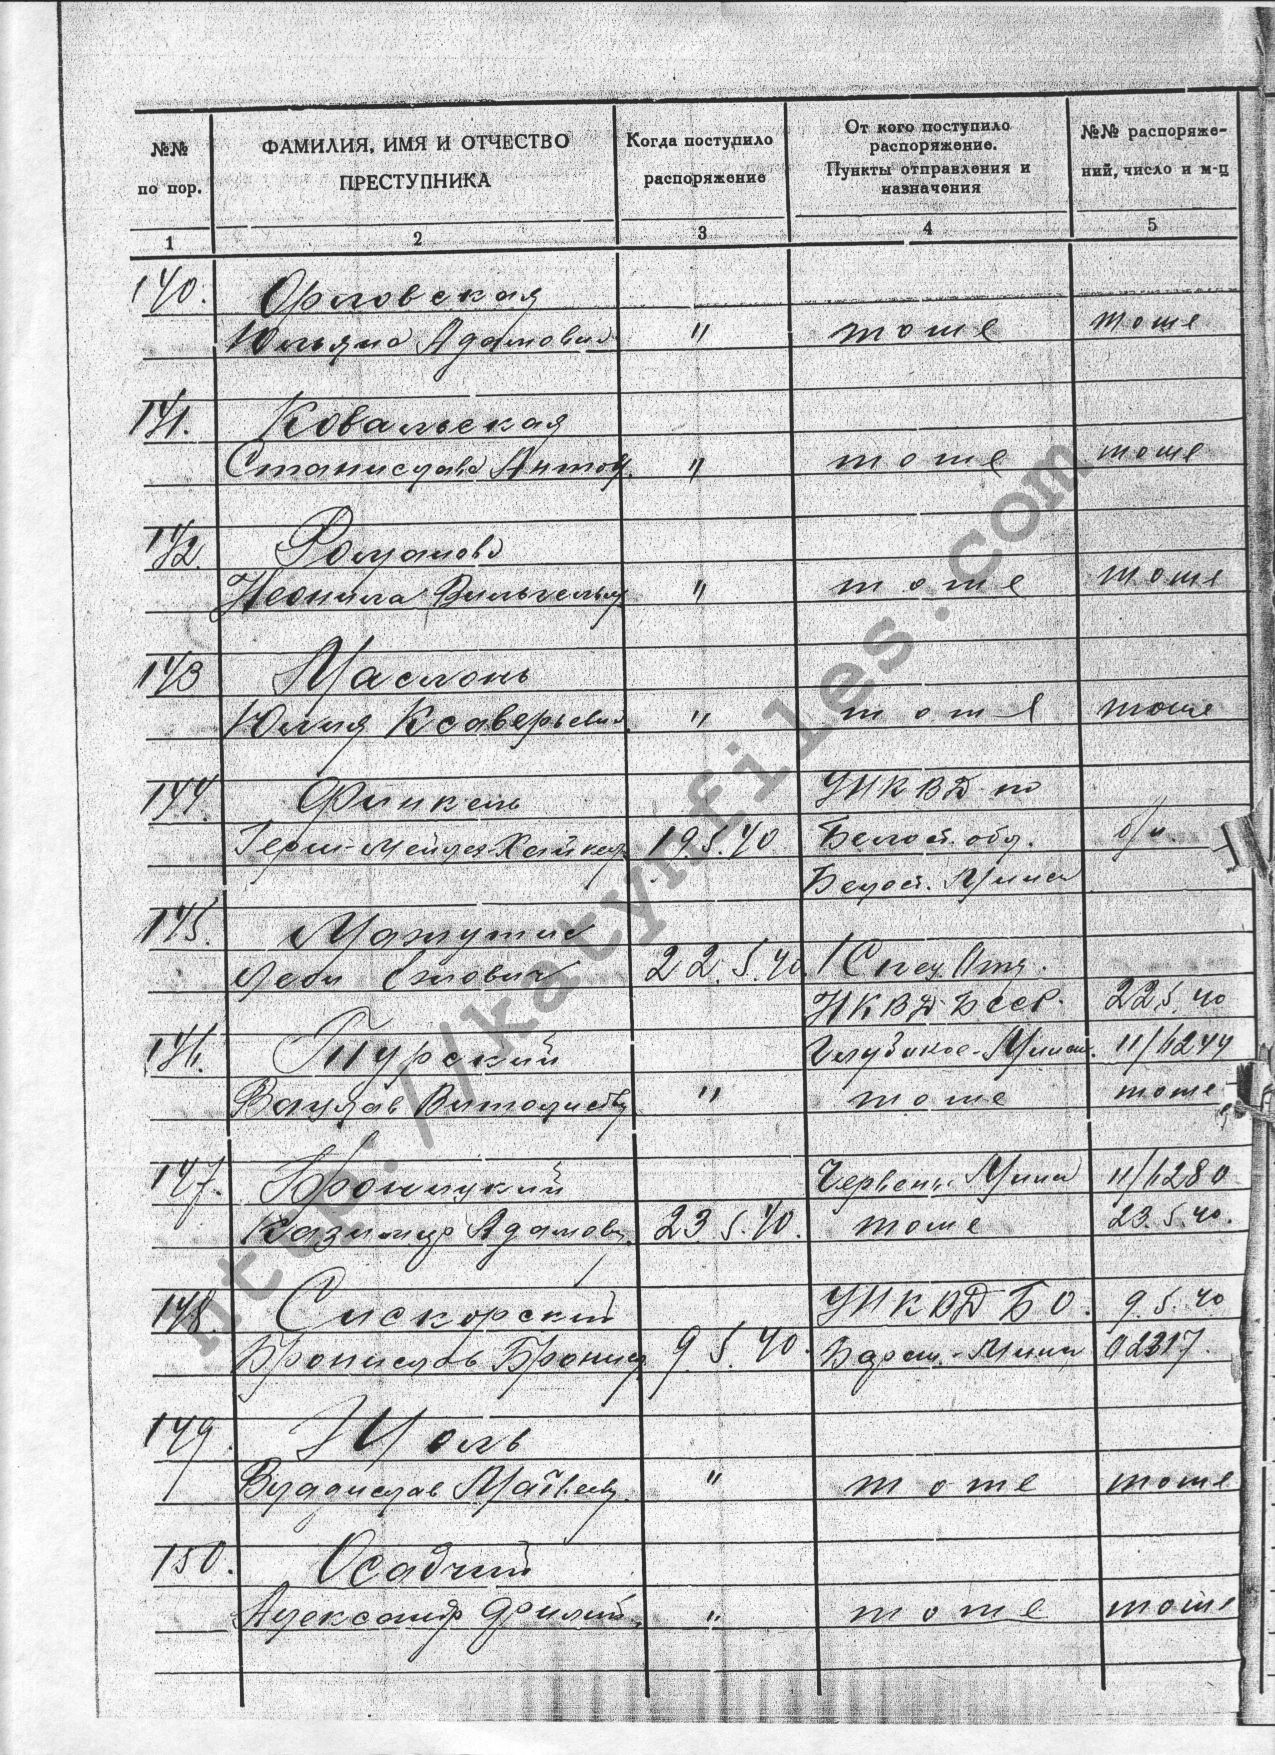 №№ по пор.
ФАМИЛИЯ, ИМЯ И ОТЧЕСТВО ПРЕСТУПНИКА
Когда поступило распоряжение
От кого поступило распоряжение. Пункты отправления и назначения
№№ распоряжений, число и м-ц
1 2 3 4 5
140. Орловская
Юльяна Адамовна " тоже тоже
141. Ковальская
Станислава Антон. " тоже тоже
142. Романова
Неонила Вильгельм. " тоже тоже
143 Маслонь
Юлия Ксаверьевна " тоже тоже
144. Финкель УНКВД по
Герш-Мейлех Хайкел. 19.5.40 Белост. обл. б/н.
Белост. Минск
145. Мажутис
Ежович 22.5.40 1 Спец. Отд.
НКВД БССР. 22 5. 40
146. Турский Глубокое-Минск. 11/6244
Вацлав Витольдов. " тоже тоже
147. Броницкий Червень. Минск 11/6280
Казимир Адамов. 23 5. 40. тоже 23. 5. 40.
148. Сискорский УНКВД БО. 9. 5. 40
Бронислав Бронис. 9 5. 40. Баран.-Минск 02317.
149. Шоль
Владислав Матвеев. " тоже тоже
150. Осадчий
Александр Филип. " тоже тоже
http://katynfiles.com